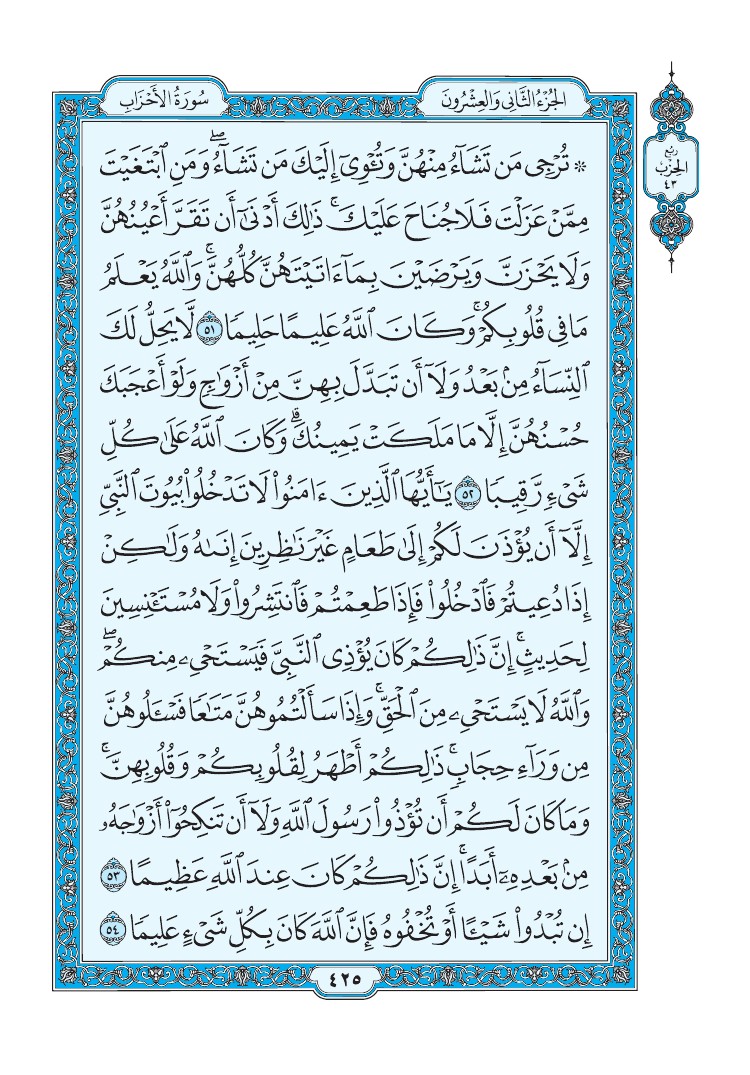 الجُزْءُ الثَّانِي وَالعِشْرُونَ
سُورَةُ الأَحْزَابِ
رُبع
الحِزْب
٤٣
۞ تُرْجِي مَن تَشَآءُ مِنْهُنَّ وَتُـْٔوِيٓ إِلَيْكَ مَن تَشَآءُۖ وَمَنِ ٱبْتَغَيْتَ
مِمَّنْ عَزَلْتَ فَلَا جُنَاحَ عَلَيْكَۚ ذَٰلِكَ أَدْنَىٰٓ أَن تَقَرَّ أَعْيُنُهُنَّ
وَلَا يَحْزَنَّ وَيَرْضَيْنَ بِمَآ ءَاتَيْتَهُنَّ كُلُّهُنَّۚ وَٱللَّهُ يَعْلَمُ
مَا فِي قُلُوبِكُمْۚ وَكَانَ ٱللَّهُ عَلِيمًا حَلِيمًا ٥١ لَّا يَحِلُّ لَكَ
ٱلنِّسَآءُ مِنۢ بَعْدُ وَلَآ أَن تَبَدَّلَ بِهِنَّ مِنْ أَزْوَٰجٍ وَلَوْ أَعْجَبَكَ
حُسْنُهُنَّ إِلَّا مَا مَلَكَتْ يَمِينُكَۗ وَكَانَ ٱللَّهُ عَلَىٰ كُلِّ
شَيْءٍ رَّقِيبًا ٥٢ يَٰٓأَيُّهَا ٱلَّذِينَ ءَامَنُوا۟ لَا تَدْخُلُوا۟ بُيُوتَ ٱلنَّبِيِّ
إِلَّآ أَن يُؤْذَنَ لَكُمْ إِلَىٰ طَعَامٍ غَيْرَ نَٰظِرِينَ إِنَىٰهُ وَلَٰكِنْ
إِذَا دُعِيتُمْ فَٱدْخُلُوا۟ فَإِذَا طَعِمْتُمْ فَٱنتَشِرُوا۟ وَلَا مُسْتَـْٔنِسِينَ
لِحَدِيثٍۚ إِنَّ ذَٰلِكُمْ كَانَ يُؤْذِي ٱلنَّبِيَّ فَيَسْتَحْيِۦ مِنكُمْۖ
وَٱللَّهُ لَا يَسْتَحْيِۦ مِنَ ٱلْحَقِّۚ وَإِذَا سَأَلْتُمُوهُنَّ مَتَٰعًا فَسْـَٔلُوهُنَّ
مِن وَرَآءِ حِجَابٍۚ ذَٰلِكُمْ أَطْهَرُ لِقُلُوبِكُمْ وَقُلُوبِهِنَّۚ
وَمَا كَانَ لَكُمْ أَن تُؤْذُوا۟ رَسُولَ ٱللَّهِ وَلَآ أَن تَنكِحُوٓا۟ أَزْوَٰجَهُۥ
مِنۢ بَعْدِهِۦٓ أَبَدًاۚ إِنَّ ذَٰلِكُمْ كَانَ عِندَ ٱللَّهِ عَظِيمًا ٥٣
إِن تُبْدُوا۟ شَيْـًٔا أَوْ تُخْفُوهُ فَإِنَّ ٱللَّهَ كَانَ بِكُلِّ شَيْءٍ عَلِيمًا ٥٤
٤٢٥